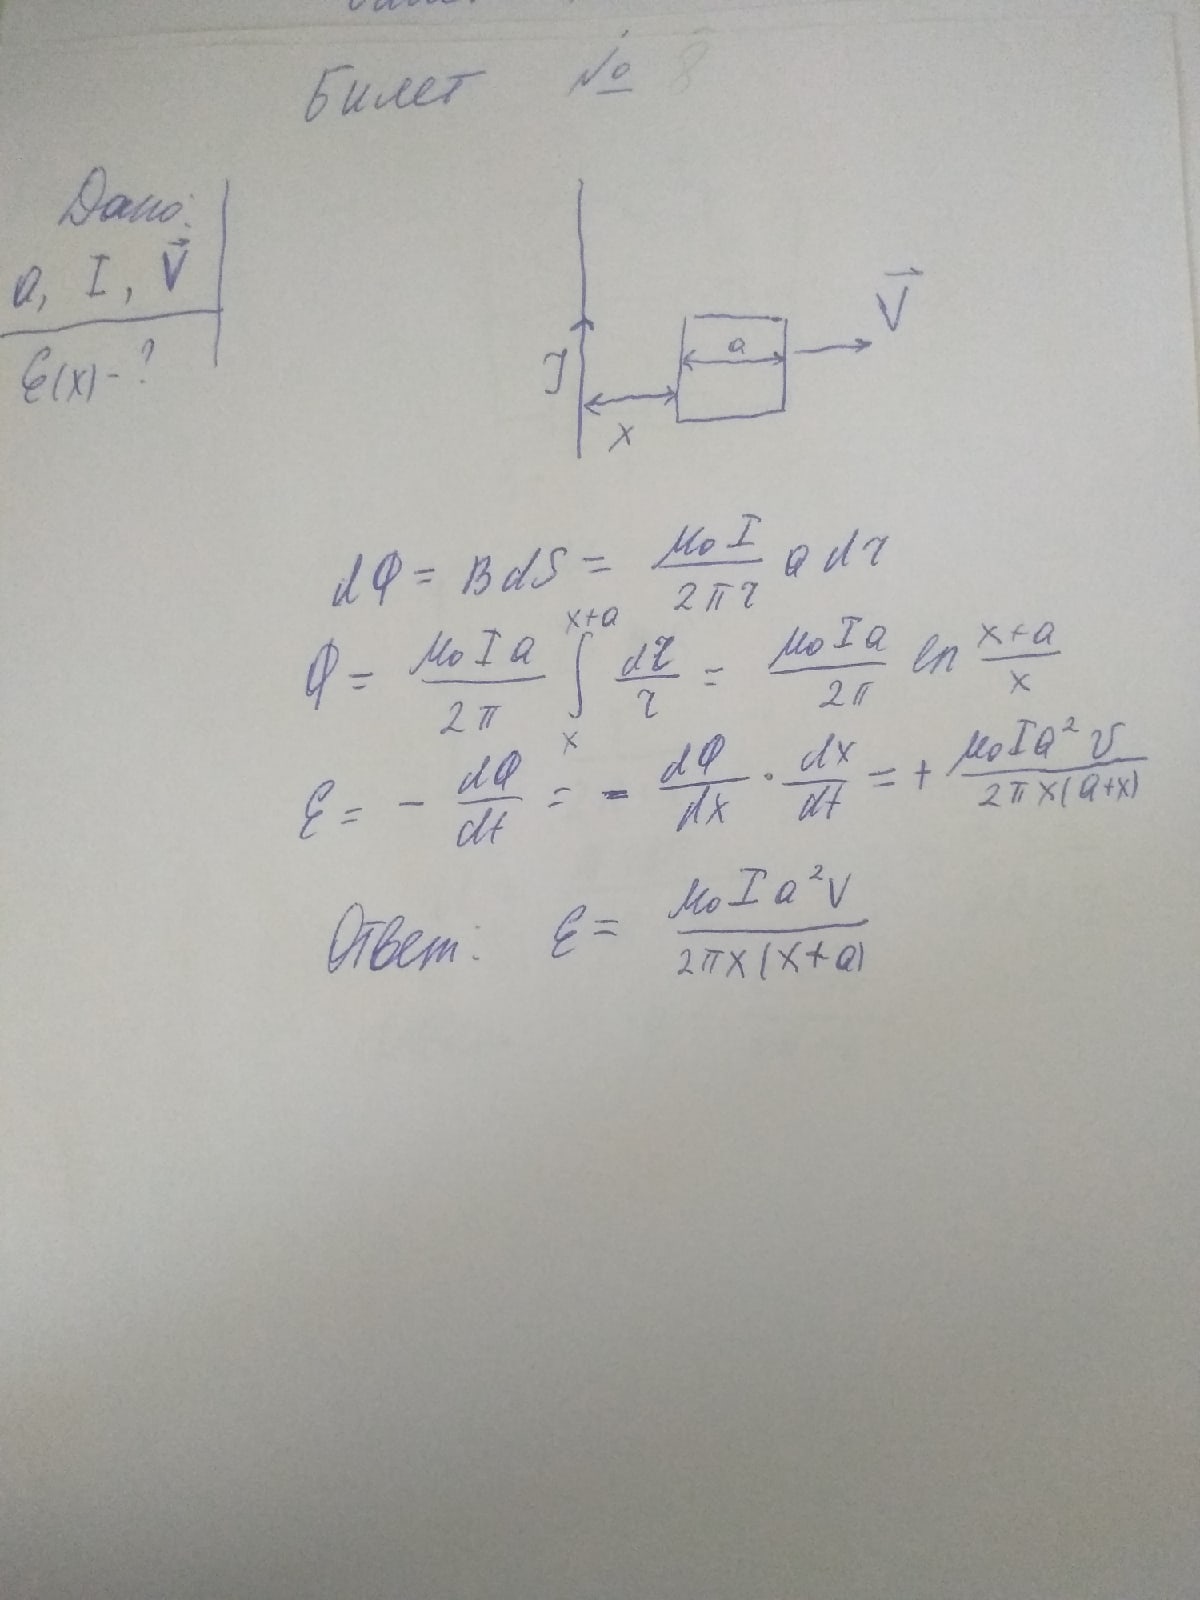 Билет № 8
Дано:
a, I, V⃗
Ɛ(x) - ?
V⃗
a
J
x
dФ = BdS = μ₀I/2πr a dr
Ф = μ₀Ia/2π ∫ₓˣ⁺ᵃ dr/r = μ₀Ia/2π ln (x+a)/x
Ɛ = - dФ/dt = - dФ/dx · dx/dt = + μ₀Ia²v/2πx(a+x)
Ответ: Ɛ = μ₀Ia²v/2πx(x+a)